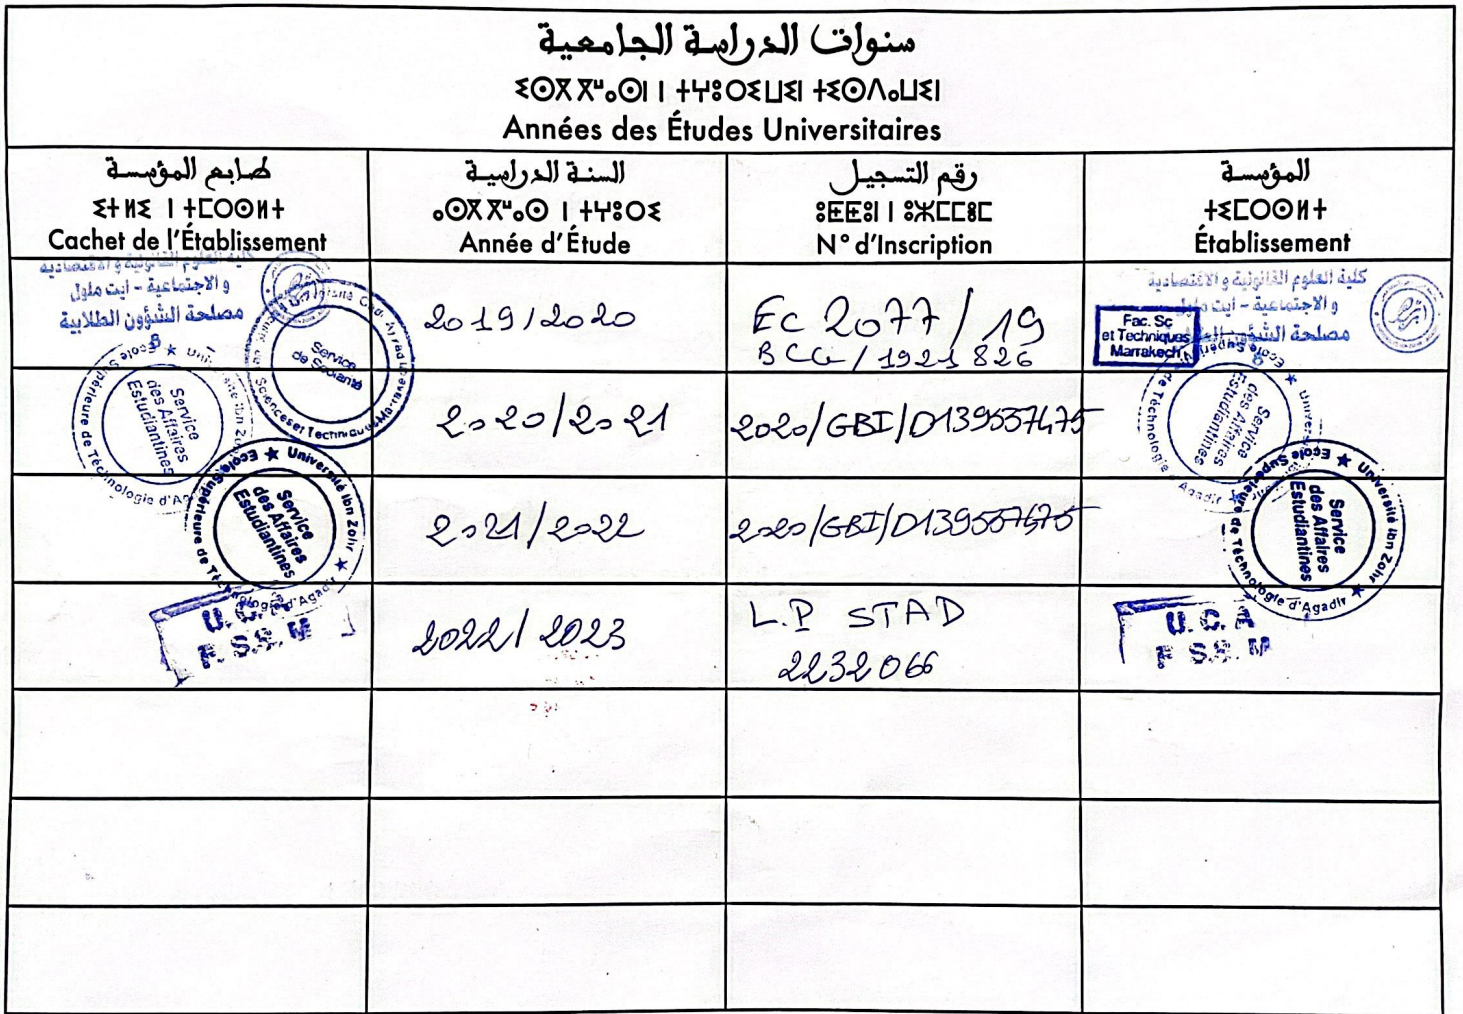 سنوات الدراسة الجامعية
ⵉⵙⴳⴳⵯⴰⵙⵏ ⵏ ⵜⵖⵓⵔⵉⵡⵉⵏ ⵜⵉⵙⴷⴰⵡⵉⵏ
Années des Études Universitaires
طابع المؤسسة
ⵉⵜⵍⵉ ⵏ ⵜⵎⵔⵙⵍⵜ
Cachet de l'Établissement
السنة الدراسية
ⴰⵙⴳⴳⵯⴰⵙ ⵏ ⵜⵖⵓⵔⵉ
Année d'Étude
رقم التسجيل
ⵓⵟⵟⵓⵏ ⵏ ⵓⵣⵎⵎⴻⵎ
N° d'Inscription
المؤسسة
ⵜⵉⵎⵔⵙⵍⵜ
Établissement
كلية العلوم القانونية و الاقتصادية
و الاجتماعية - ايت ملول
مصلحة الشؤون الطلابية
Service
de Scolarité
2019/2020
EC 2077/19
BCG/1921826
كلية العلوم القانونية و الاقتصادية
و الاجتماعية - ايت ملول
مصلحة الشؤون الطلابية
Fac. Sc
et Techniques
Marrakech
Ecole Supérieure de Technologie d'Agadir
Service
des Affaires
Estudiantines
2020/2021
2020/GBI/D139537475
Service
des Affaires
Estudiantines
Université Ibn Zohr ★ Ecole Supérieure de Technologie d'Agadir ★
Service
des Affaires
Estudiantines
2021/2022
2020/GBI/D139537475
Université Ibn Zohr ★ Ecole Supérieure de Technologie d'Agadir ★
Service
des Affaires
Estudiantines
U.C.
F.S.S.M
2022/2023
L.P STAD
2232066
U.C.
F.S.S.M